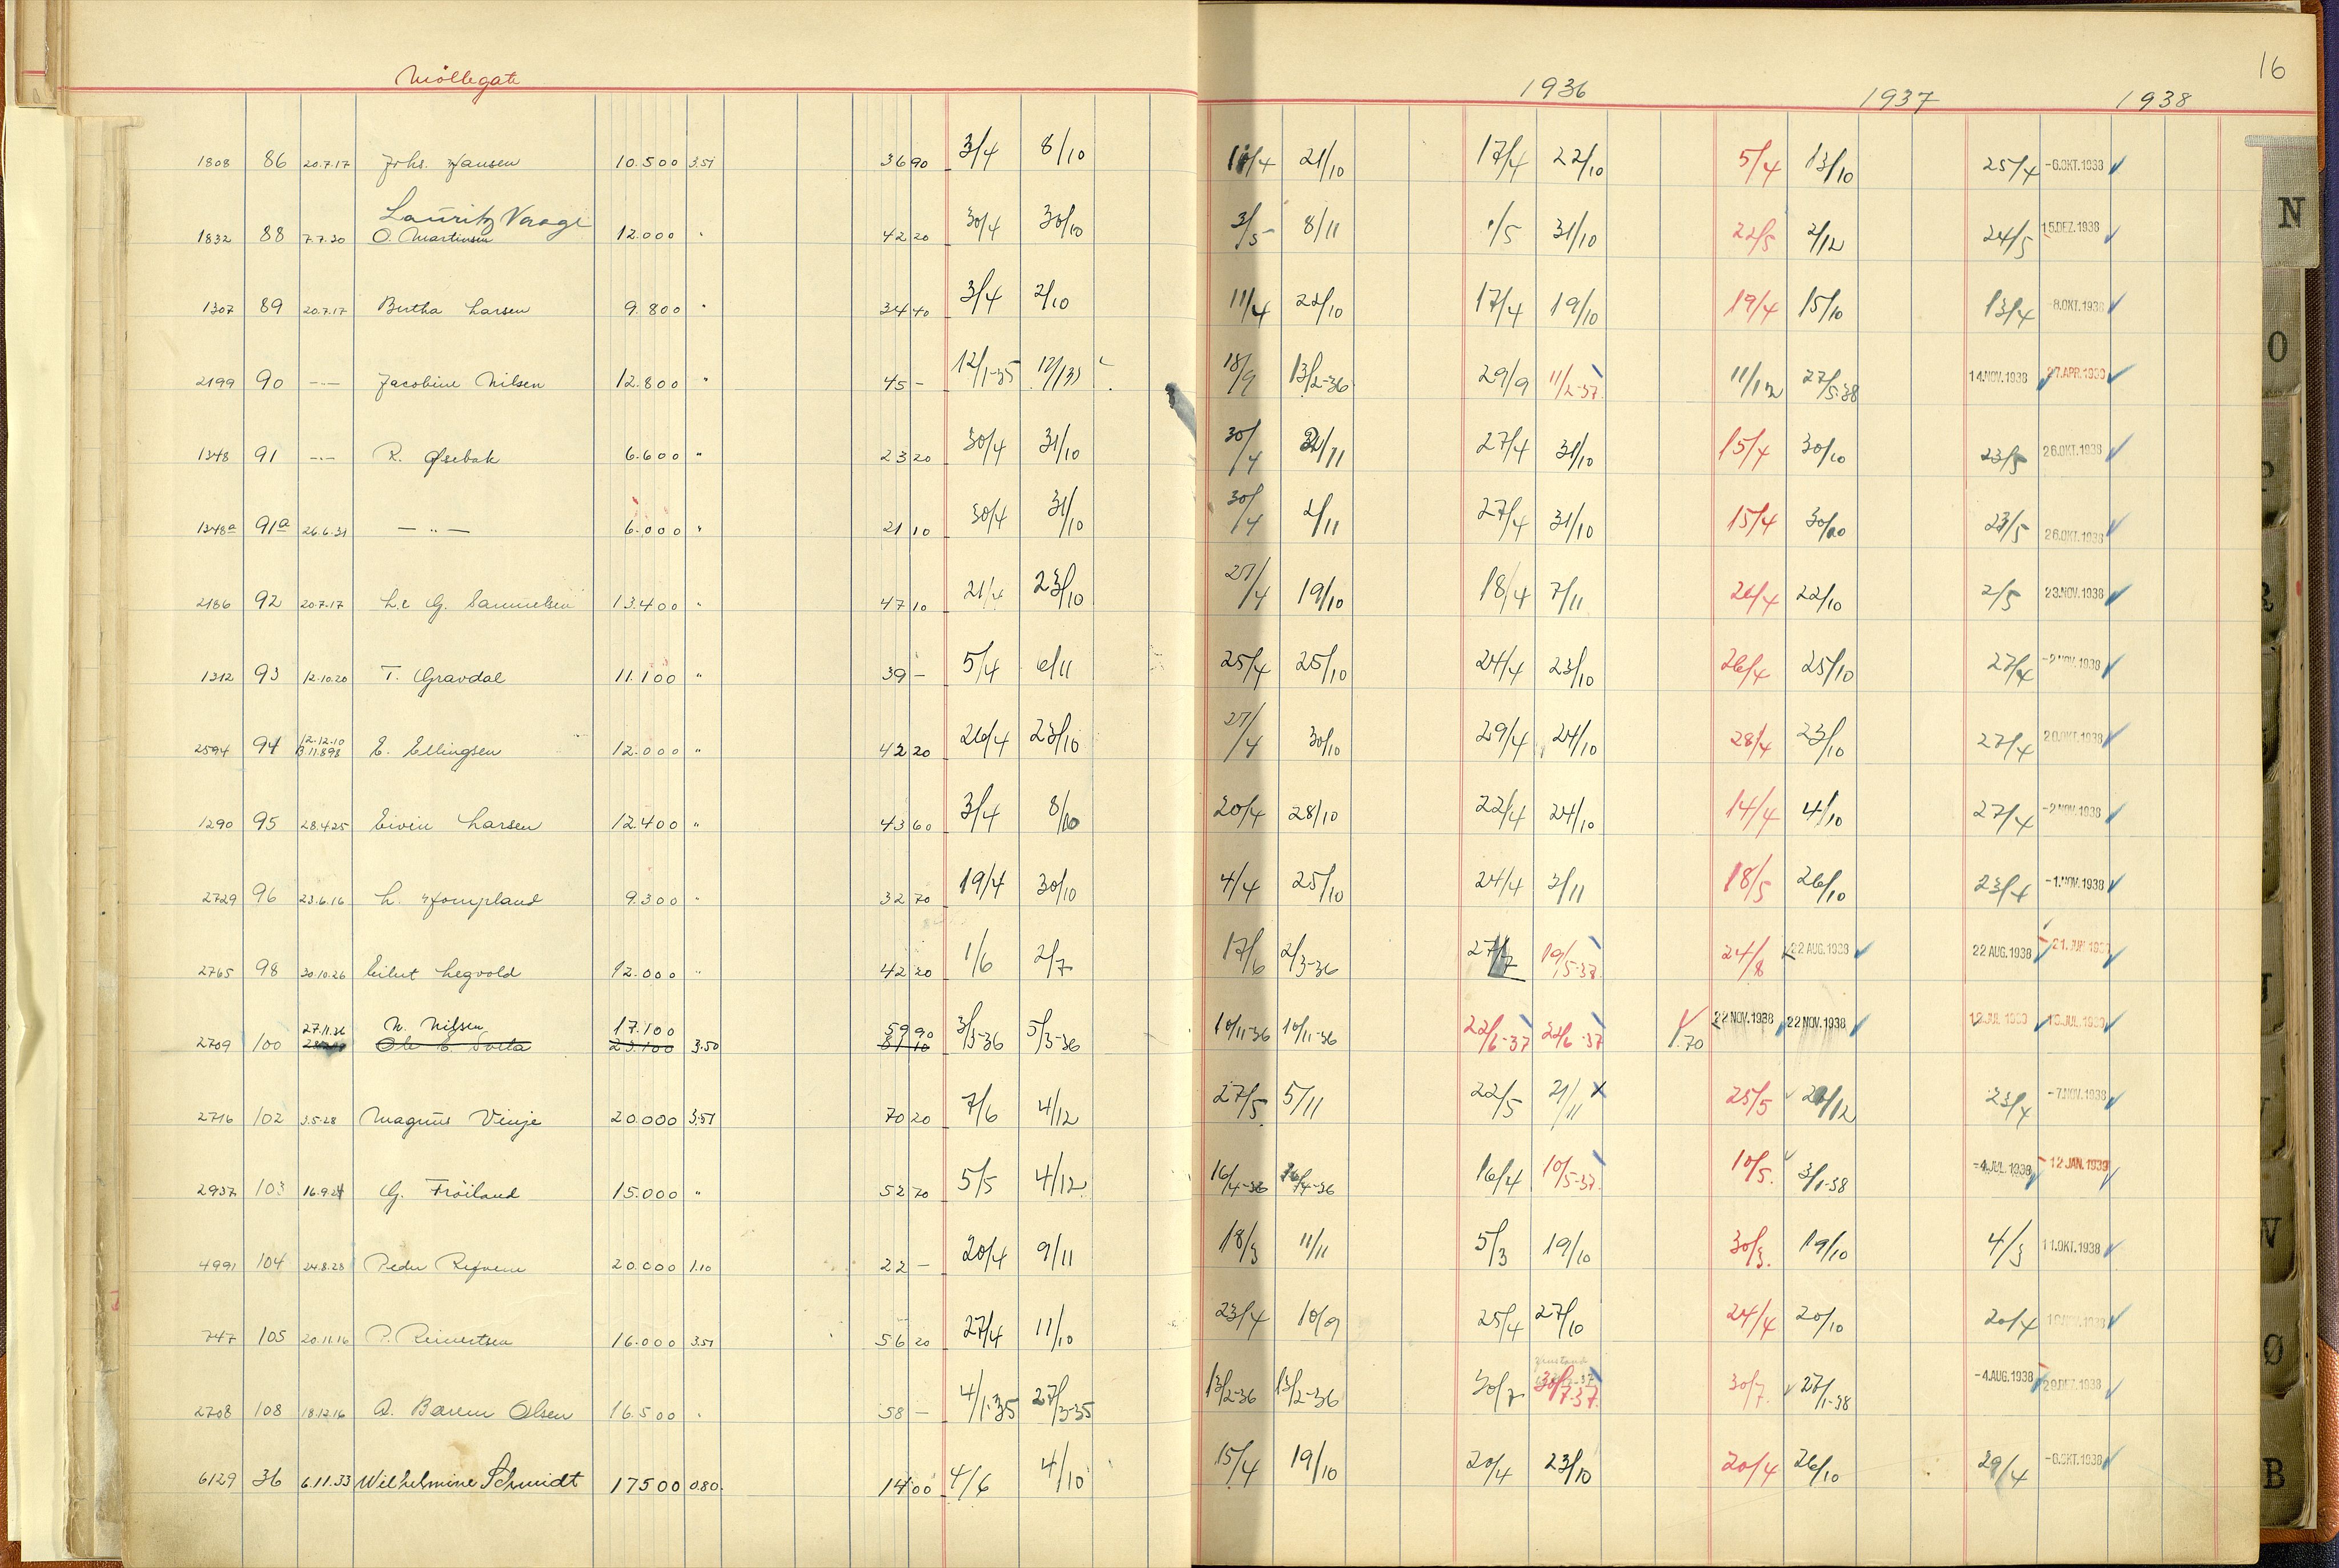 Möllegate
1936 1937 1938 16
1808 86 20.7.17 Johs. Hansen 10.500 3.51 36 90 3/4 8/10 21/10 17/4 22/10 5/4 13/10 25/4 -6.OKT.1938
Lauritz Vaage
1832 88 7.7.30 O. Martinsen 12.000 " 42 20 30/4 30/10 3/5 8/11 1/5 31/10 22/5 2/12 24/5 15.DEZ.1938
1307 89 20.7.17 Bertha Larsen 9.800 " 34 40 3/4 2/10 11/4 22/10 17/4 19/10 19/4 15/10 13/4 -8.OKT.1938
2199 90 -"- Jacobine Nilsen 12.800 " 45 - 12/1-35 18/9 13/2-36 29/9 11/2-37 11/12 27/5-38 14.NOV.1938 27.APR.1939
1348 91 -"- R. Øsebak 6.600 " 23 20 30/4 31/10 30/4 27/4 31/10 15/4 30/10 23/5 26.OKT.1938
1348a 91a 26.6.31 - " - 6.000 " 21 10 30/4 31/10 30/4 2/11 27/4 31/10 15/4 30/10 23/5 26.OKT.1938
2186 92 20.7.17 L. & G. Samuelsen 13.400 " 47 10 21/4 23/10 27/4 19/10 18/4 7/11 26/4 22/10 2/5 23.NOV.1938
1312 93 12.10.20 T. Gravdal 11.100 " 39 - 5/4 6/11 25/4 25/10 24/4 23/10 26/4 25/10 27/4 -2.NOV.1938
12.12.10
2594 94 B.11.898 E. Ellingsen 12.000 " 42 20 26/4 23/10 27/4 30/10 29/4 24/10 28/4 23/10 27/4 20.OKT.1938
1290 95 28.4.25 Eivin Larsen 12.400 " 43 60 3/4 8/10 20/4 28/10 22/4 24/10 14/4 4/10 27/4 -2.NOV.1938
2729 96 23.6.16 L. Hompland 9.300 " 32 70 19/4 30/10 4/4 25/10 24/4 3/11 18/5 26/10 23/4 -1.NOV.1938
2765 98 30.10.26 Eilut Legvold 12.000 " 42 20 1/6 2/7 17/6 2/3-36 27/7 19/5-38 24/8 22 AUG.1938 22 AUG.1938
27.11.36 N. Nilsen 17.100 59 90
2709 100 23.100 3.50 81 10 3/3-36 5/3-36 10/11-36 10/11-36 22/6-37 22/6-37 70 22 NOV.1938 22 NOV.1938
2716 102 3.5.28 Magnus Vinje 20.000 3.51 70 20 7/6 4/12 27/5 5/11 22/5 21/11 x 25/5 23/4 -7.NOV.1938
2937 103 16.9.24 G. Fröiland 15.000 " 52 70 5/5 4/12 16/4-36 16/4-36 16/4 10/5-37 10/5 3/1-38 -4.JUL.1938 12 JAN.1939
4991 104 24.8.28 Peder Refvem 20.000 1.10 22 - 20/4 9/11 18/3 11/11 5/3 19/10 30/3 19/10 4/3 11.OKT.1938
747 105 20.11.16 P. Reinertsen 16.000 3.51 56 20 27/4 11/10 23/4 10/9 25/4 27/10 24/4 20/10 20/4
2708 108 18.12.16 A. Barem Olsen 16.500 " 58 - 4/1-35 27/3-35 13/2-36 13/2-36 30/7 30/7-37 30/7 27/1-38 -4.AUG.1938 29.DEZ.1938
6129 36 6.11.33 Wilhelmine Schmidt 17500 0.80 14 00 4/6 4/10 15/4 19/10 20/4 23/10 20/4 26/10 29/4 -6.OKT.1938
N
O
Ø
B